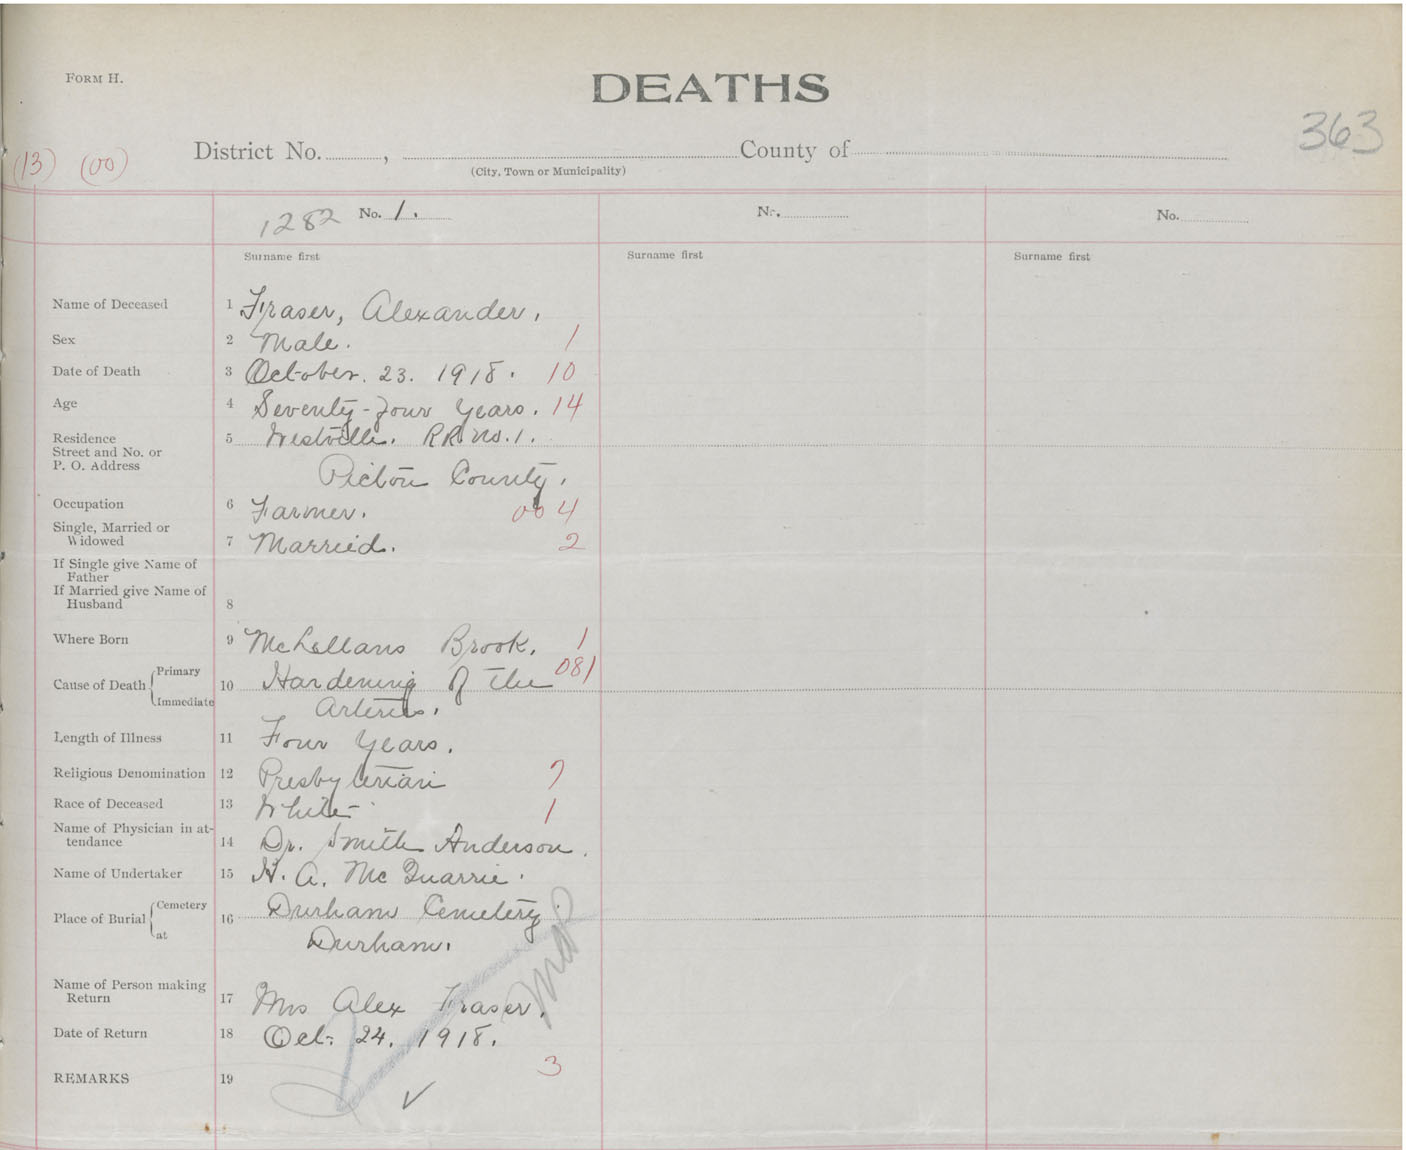 FORM H.
DEATHS
363
(13) (00)
District No. , County of
(City, Town or Municipality)
1282 No. 1. No. No.
Surname first Surname first Surname first
Name of Deceased 1 Fraser, Alexander.
Sex 2 Male. 1
Date of Death 3 October. 23. 1918. 10
Age 4 Seventy-four Years. 14
Residence 5 Westville. RR No. 1.
Street and No. or
P. O. Address Pictou County.
Occupation 6 Farmer. 00 4
Single, Married or
Widowed 7 Married. 2
If Single give Name of
Father
If Married give Name of
Husband 8
Where Born 9 McLellans Brook. 1
Cause of Death Primary 10 Hardening of the 081
Immediate Arteries.
Length of Illness 11 Four Years.
Religious Denomination 12 Presbyterian 7
Race of Deceased 13 White 1
Name of Physician in at-
tendance 14 Dr. Smith Anderson.
Name of Undertaker 15 H. A. McQuarrie.
Place of Burial Cemetery 16 Durham Cemetery
at Durham.
Name of Person making
Return 17 Mrs Alex Fraser.
Date of Return 18 Oct. 24. 1918.
3
REMARKS 19